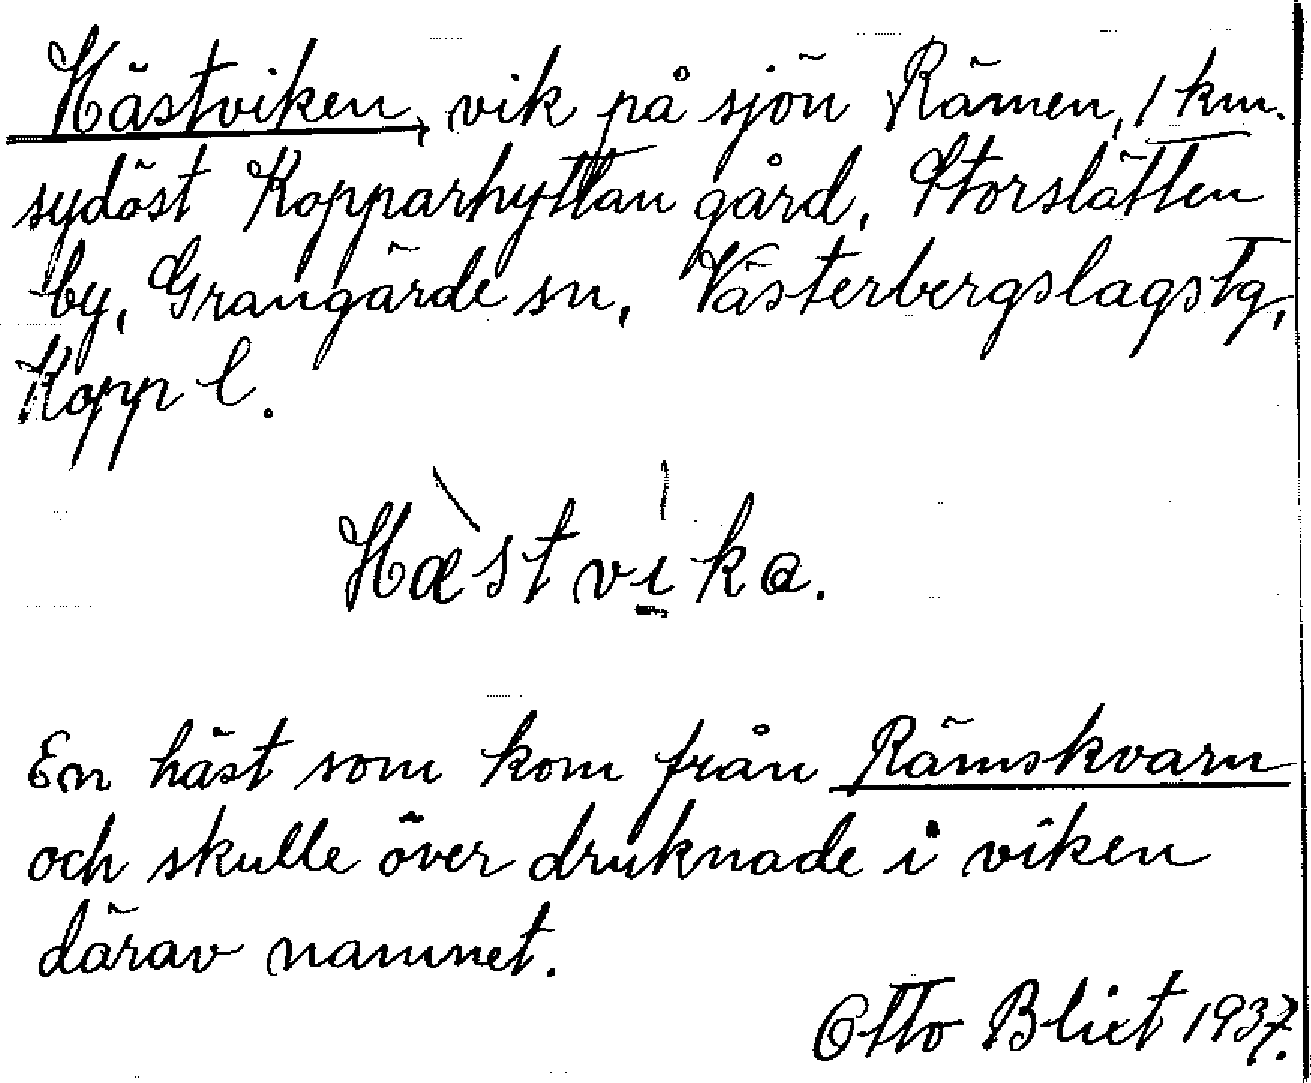 Hästviken, vik på sjön Rämen, 1 km.
sydöst Kopparhyttan gård, Storslätten
by, Grangärde sn, Västerbergslagstg,
Kopp l.
Hæstvika.
En häst som kom från Rämskvarn
och skulle över druknade i viken
därav namnet.
Otto Blixt 1937.